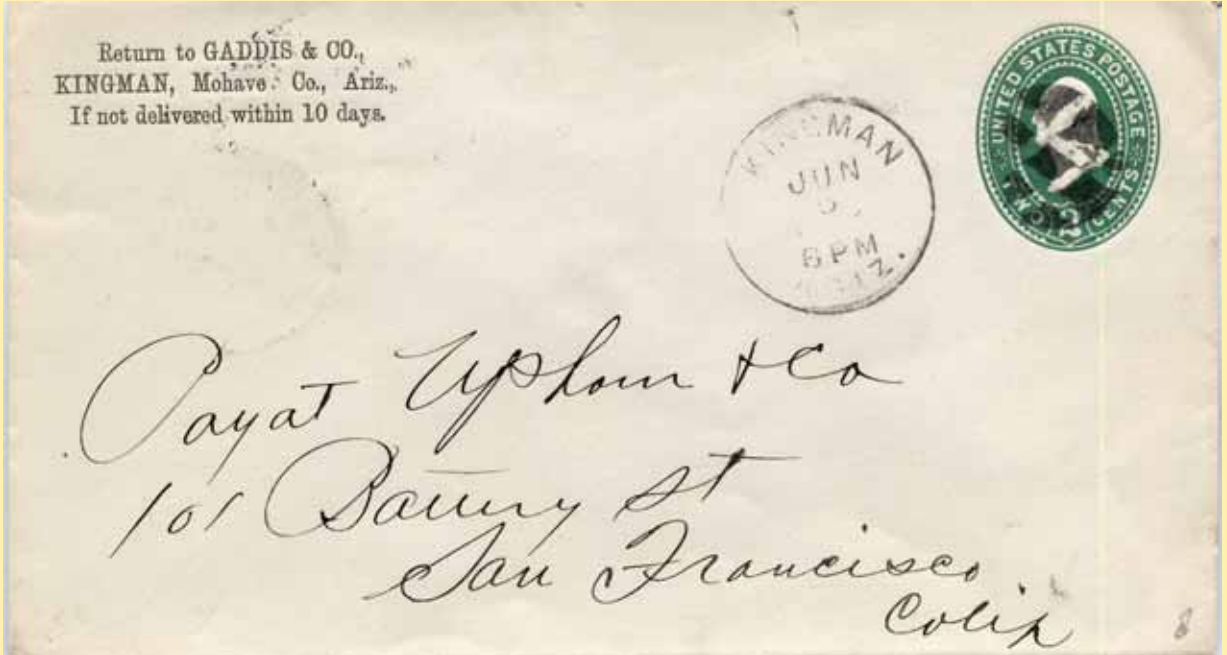 Return to GADDIS & CO.,
KINGMAN, Mohave Co., Ariz.,
If not delivered within 10 days.
KINGMAN
JUN
6 PM
ARIZ.
UNITED STATES POSTAGE
TWO 2 CENTS
Payat Upham & Co
101 Battery St
San Francisco
Calif
8